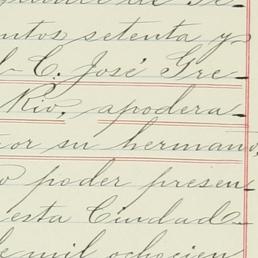 ntos setenta y
C. José Gre-
Rio, apodera-
por su hermano,
o poder presen-
esta Ciudad
de mil ochocien